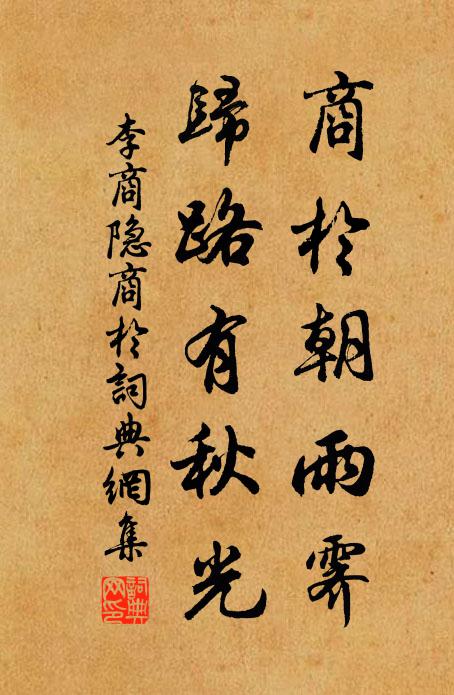 商於朝雨霁
歸路有秋光
李商隐商於詞典網集
詞典网印